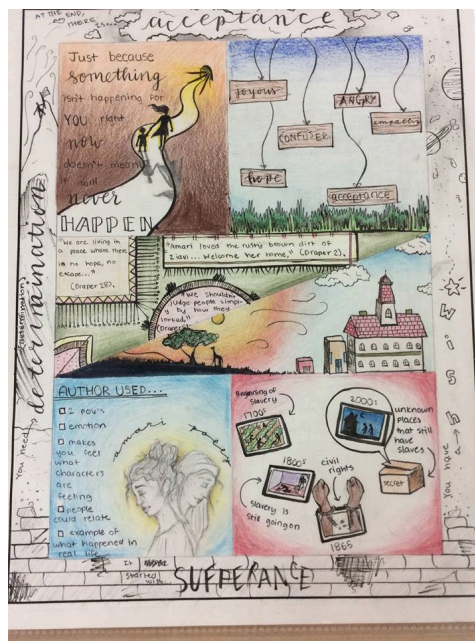 AT THE END,
THERE
IS
acceptance
Just because
something
isn't happening for
YOU right
now
doesn't mean
it will
never
HAPPEN
joyous
CONFUSED
ANGRY
empathy
hope
acceptance
"We are living in
a place where there
is no hope, no
escape..."
(Draper 28).
"Amari loved the rusty brown dirt of
Ziavi... Welcome her home," (Draper 2).
"We shouldn't
judge people simply
by how they
looked,"
(Draper
AUTHOR USED...
2 POV's
emotion
makes
you feel
what
characters
are
feeling
people
could relate
example of
what happened in
real life
amari polly
Beginning of
slavery
1700s
1800s
slavery is
still going on
civil
rights
1865
2000s
unknown
places
that still
have
slaves
secret
You need
determination
You have
wish
It
started
with...
SUFFERANCE